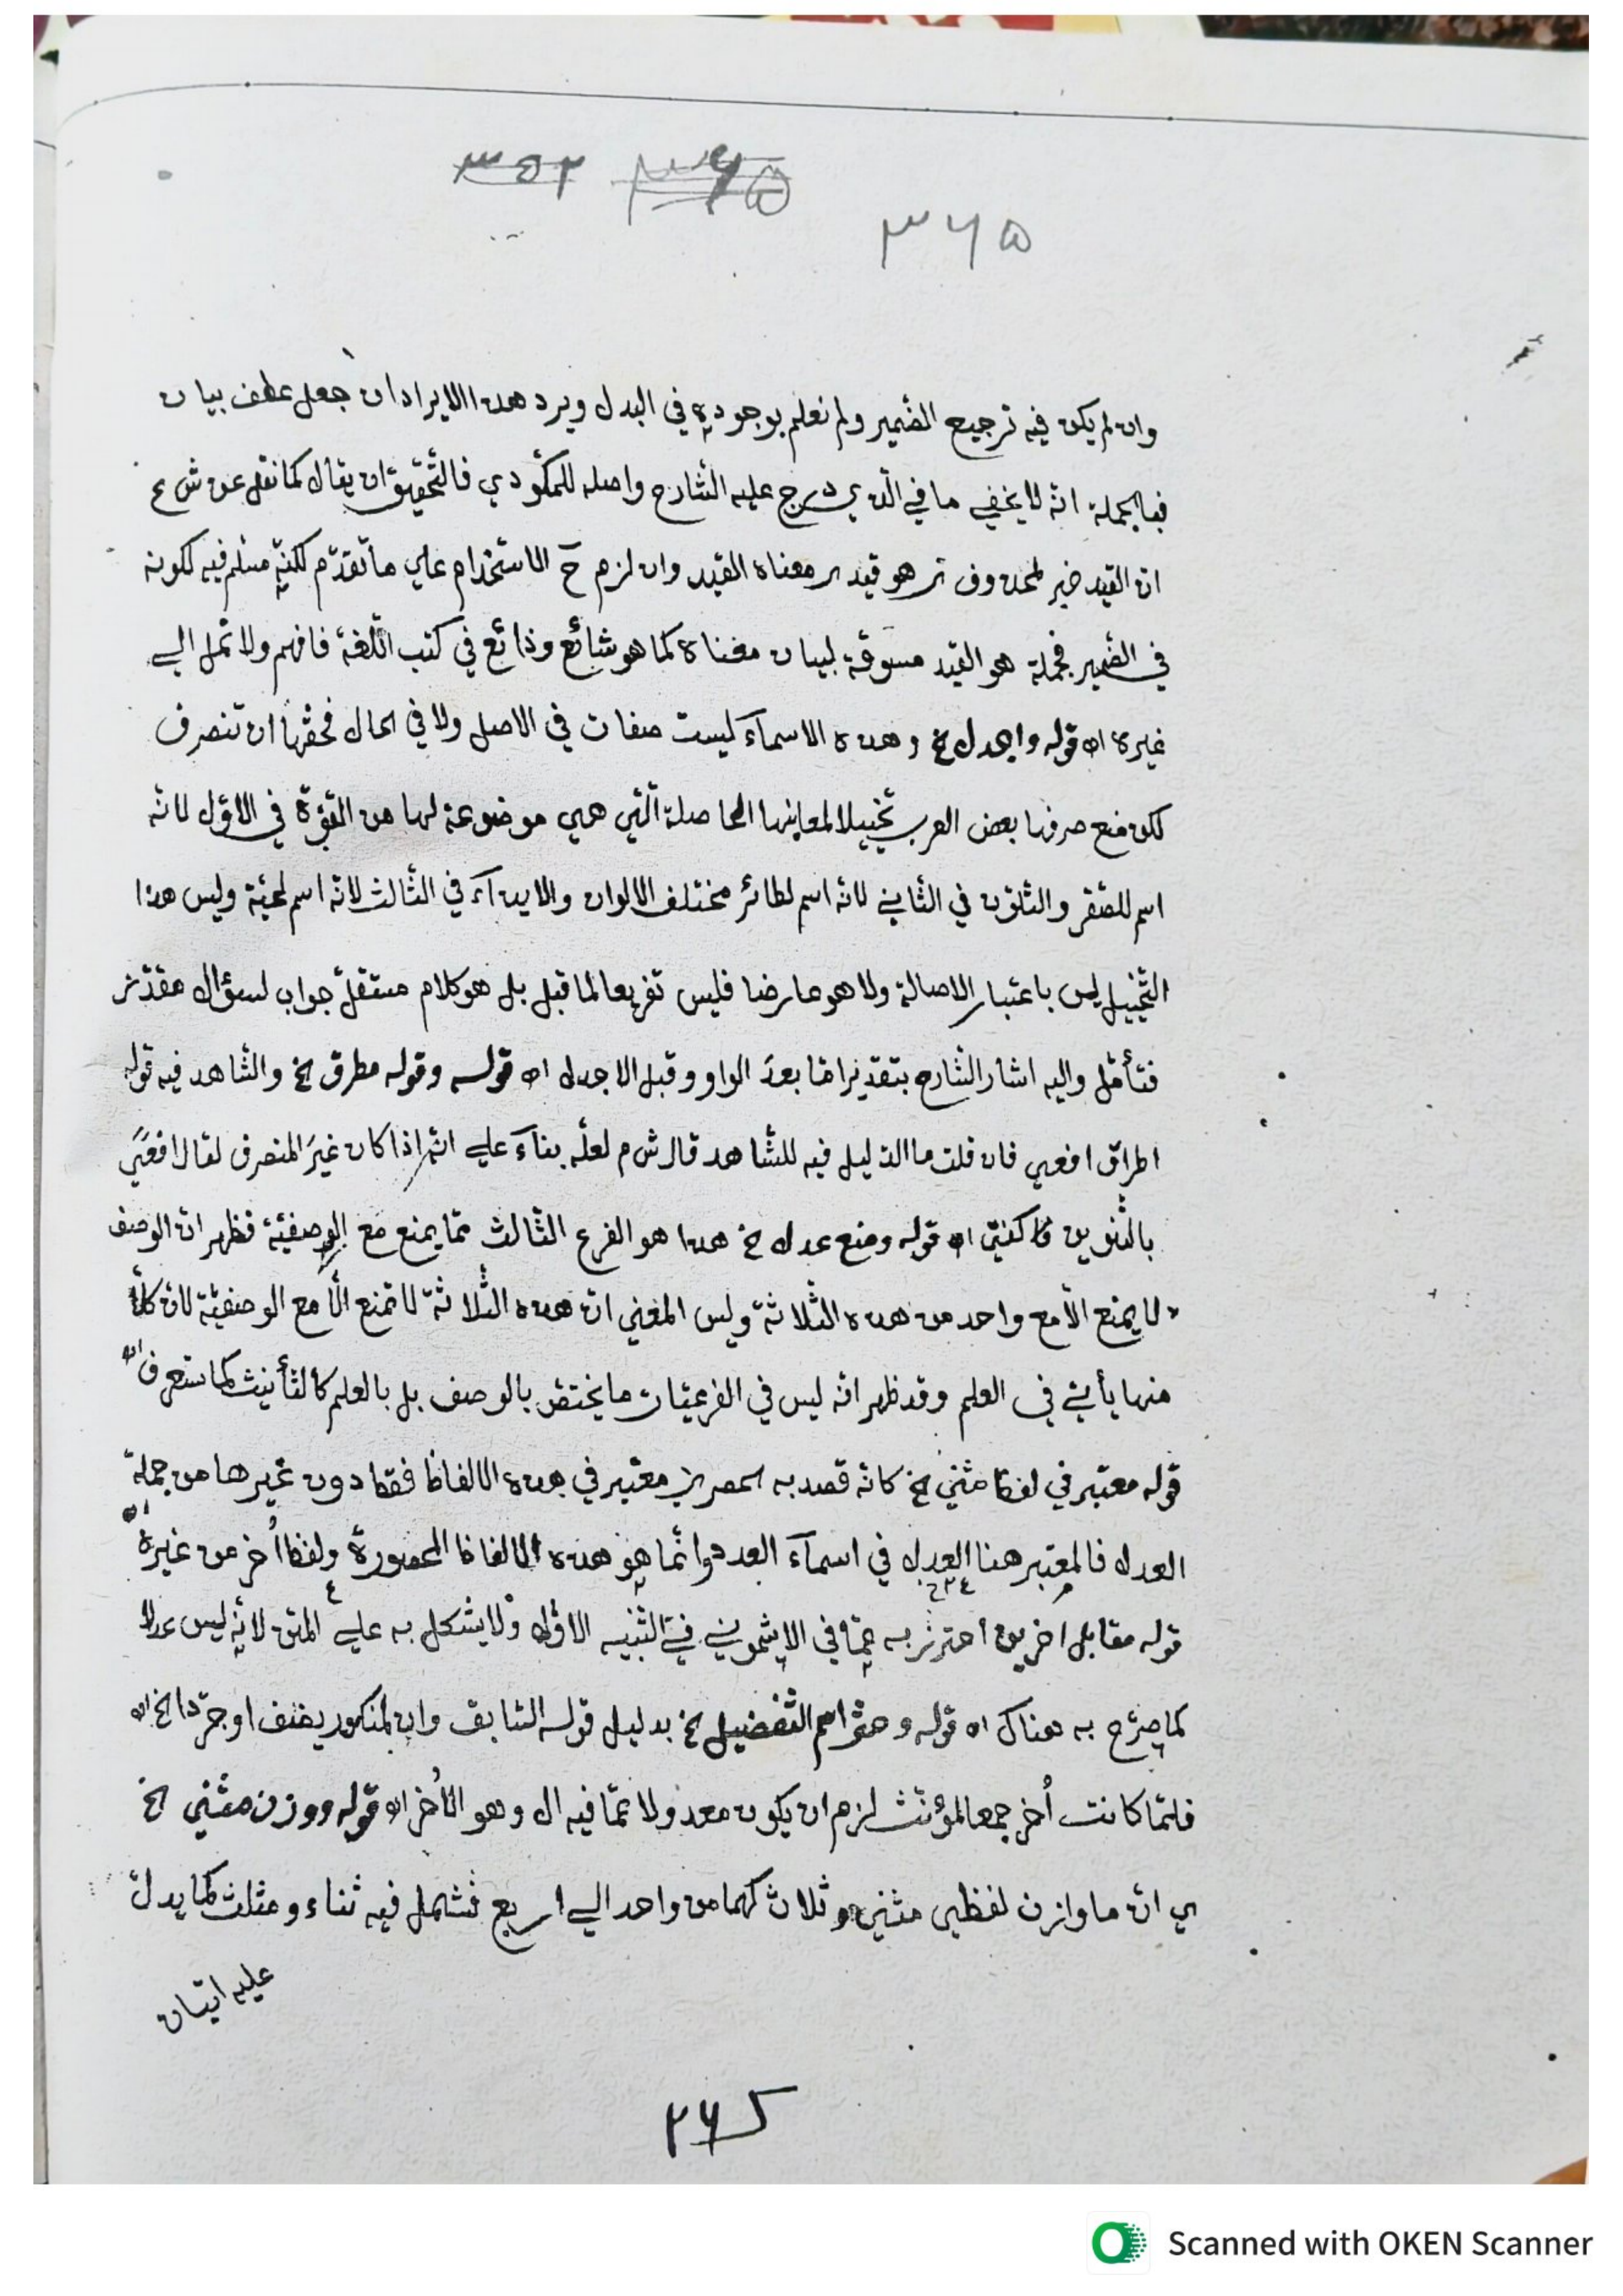 ٣٥٢ ٣٦٥
٣٦٥
وان لم يكن فيه ترجيع الضمير ولم نعلم بوجوديه في البدل ويرد هذا الايراد ان جعل عطف بيان
فبالجملة انه لا يخفي ما في الذي درج عليه الشارح واصله للمكودي فالتحقيق ان يقال كما نقل عن ش ع
ان القيد خبر لمحذوف هو قيد معناه القيد وان لزم ح الاستخدام علي ما تقدّم لكنه مسلم فيه لكونه
في الضمير فجملة هو القيد مسوقة لبيان معناه كما هو شائع وذائع في كتب اللّغة فافهم ولا تمل الي
غيره اه قوله واجدل الخ وهذه الاسمآء ليست صفات في الاصل ولا في الحال فحقها ان تنصرف
لكن منع صرفها بعض العرب تخييلا لمعاينها الحاصلة الّتي هي موضوعة لها من القوّة في الاوّل لانّه
اسم للصّقر والتلوّن في الثاني لانّه اسم لطائر مختلف الالوان والايذآء في الثالث لانّه اسم لحيّة وليس هذا
التّخييل ليس باعتبار الاصالة ولا هو عارضا فليس تفريعا لما قبل بل هو كلام مستقلّ جواب لسؤال مقدّر
فتأمّل واليه اشار الشّارح بتقدير امّا بعد الواو وقبل الاجدل اه قوله وقوله مطرق الخ والشّاهد فيه قوله
اطراق افعي فان قلت ما الدّليل فيه للشّاهد قال ش م لعلّه بنآء علي انّه اذا كان غير المنصرف لقال افعيً
بالتّنوين كفتيً اه قوله ومنع عدل الخ هذا هو الفرع الثّالث ممّا يمنع مع الوصفيّة فظهر انّ الوصف
لا يمنع الّا مع واحد من هذه الثّلاثة وليس المعني انّ هذه الثّلاثة لا تمنع الّا مع الوصفيّة لانّ كلّا
منها يأتي في العلم وقد ظهر انّه ليس في الفرعيّات ما يختصّ بالوصف بل بالعلم كالتّأنيث كما ستعرف اه
قوله معتبر في لفظ مثني الخ كانّه قصد به الحصر معتبر في هذه الالفاظ فقط دون غيرها من جملة
العدل فالمعتبر هنا العدل في اسمآء العدد وانّما هو هذه الالفاظ المحصورة ولفظ اُخر من غيره اه
قوله مقابل اخرين احترز به عمّا في الاشموني في التّنبيه الاوّل ولا يشكل به علي المتن لانّه ليس عدلا
كما صرّح به هناك اه قوله وحقّ اسم التّفضيل الخ بدليل قوله السّابق وان لمنكور يضف او جرّدا الخ اه
فلمّا كانت اُخر جمعا لمؤنّث لزم ان يكون معدولا عمّا فيه ال وهو الاُخر اه قوله ووزن مثني الخ
ي انّ ما وازن لفظي مثني وثلاث كهما من واحد الي اربع فشمل فيه ثناء ومثلث كما يدلّ
عليه اتيان
٢٦٥
Scanned with OKEN Scanner